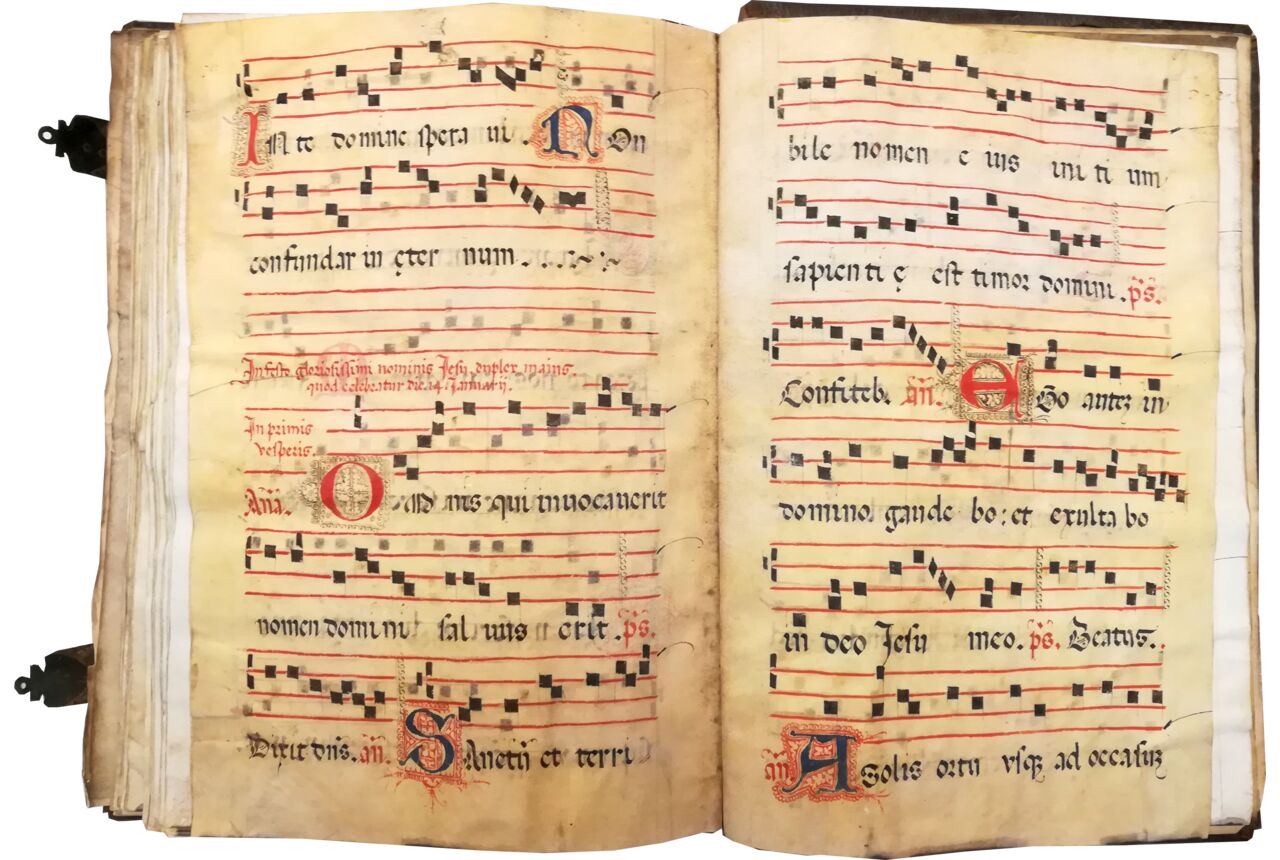 IN te domine spera ui. NOn
confundar in ęter num
In festo gloriosissimi nominis Jesu duplex maius.
quod celebratur die 14 Januarii.
In primis
vesperis.
Ana. OMnis qui inuocauerit
nomen domini saluus erit. ps.
Dixit dns. an. SAnctũ et terri
bile nomen eius initium
sapientię est timor domini. ps.
Confiteb. an. EGo autẽ in
domino gaude bo: et exulta bo
in deo Jesu meo. ps. Beatus.
an. A solis ortu vsq ad occasũ